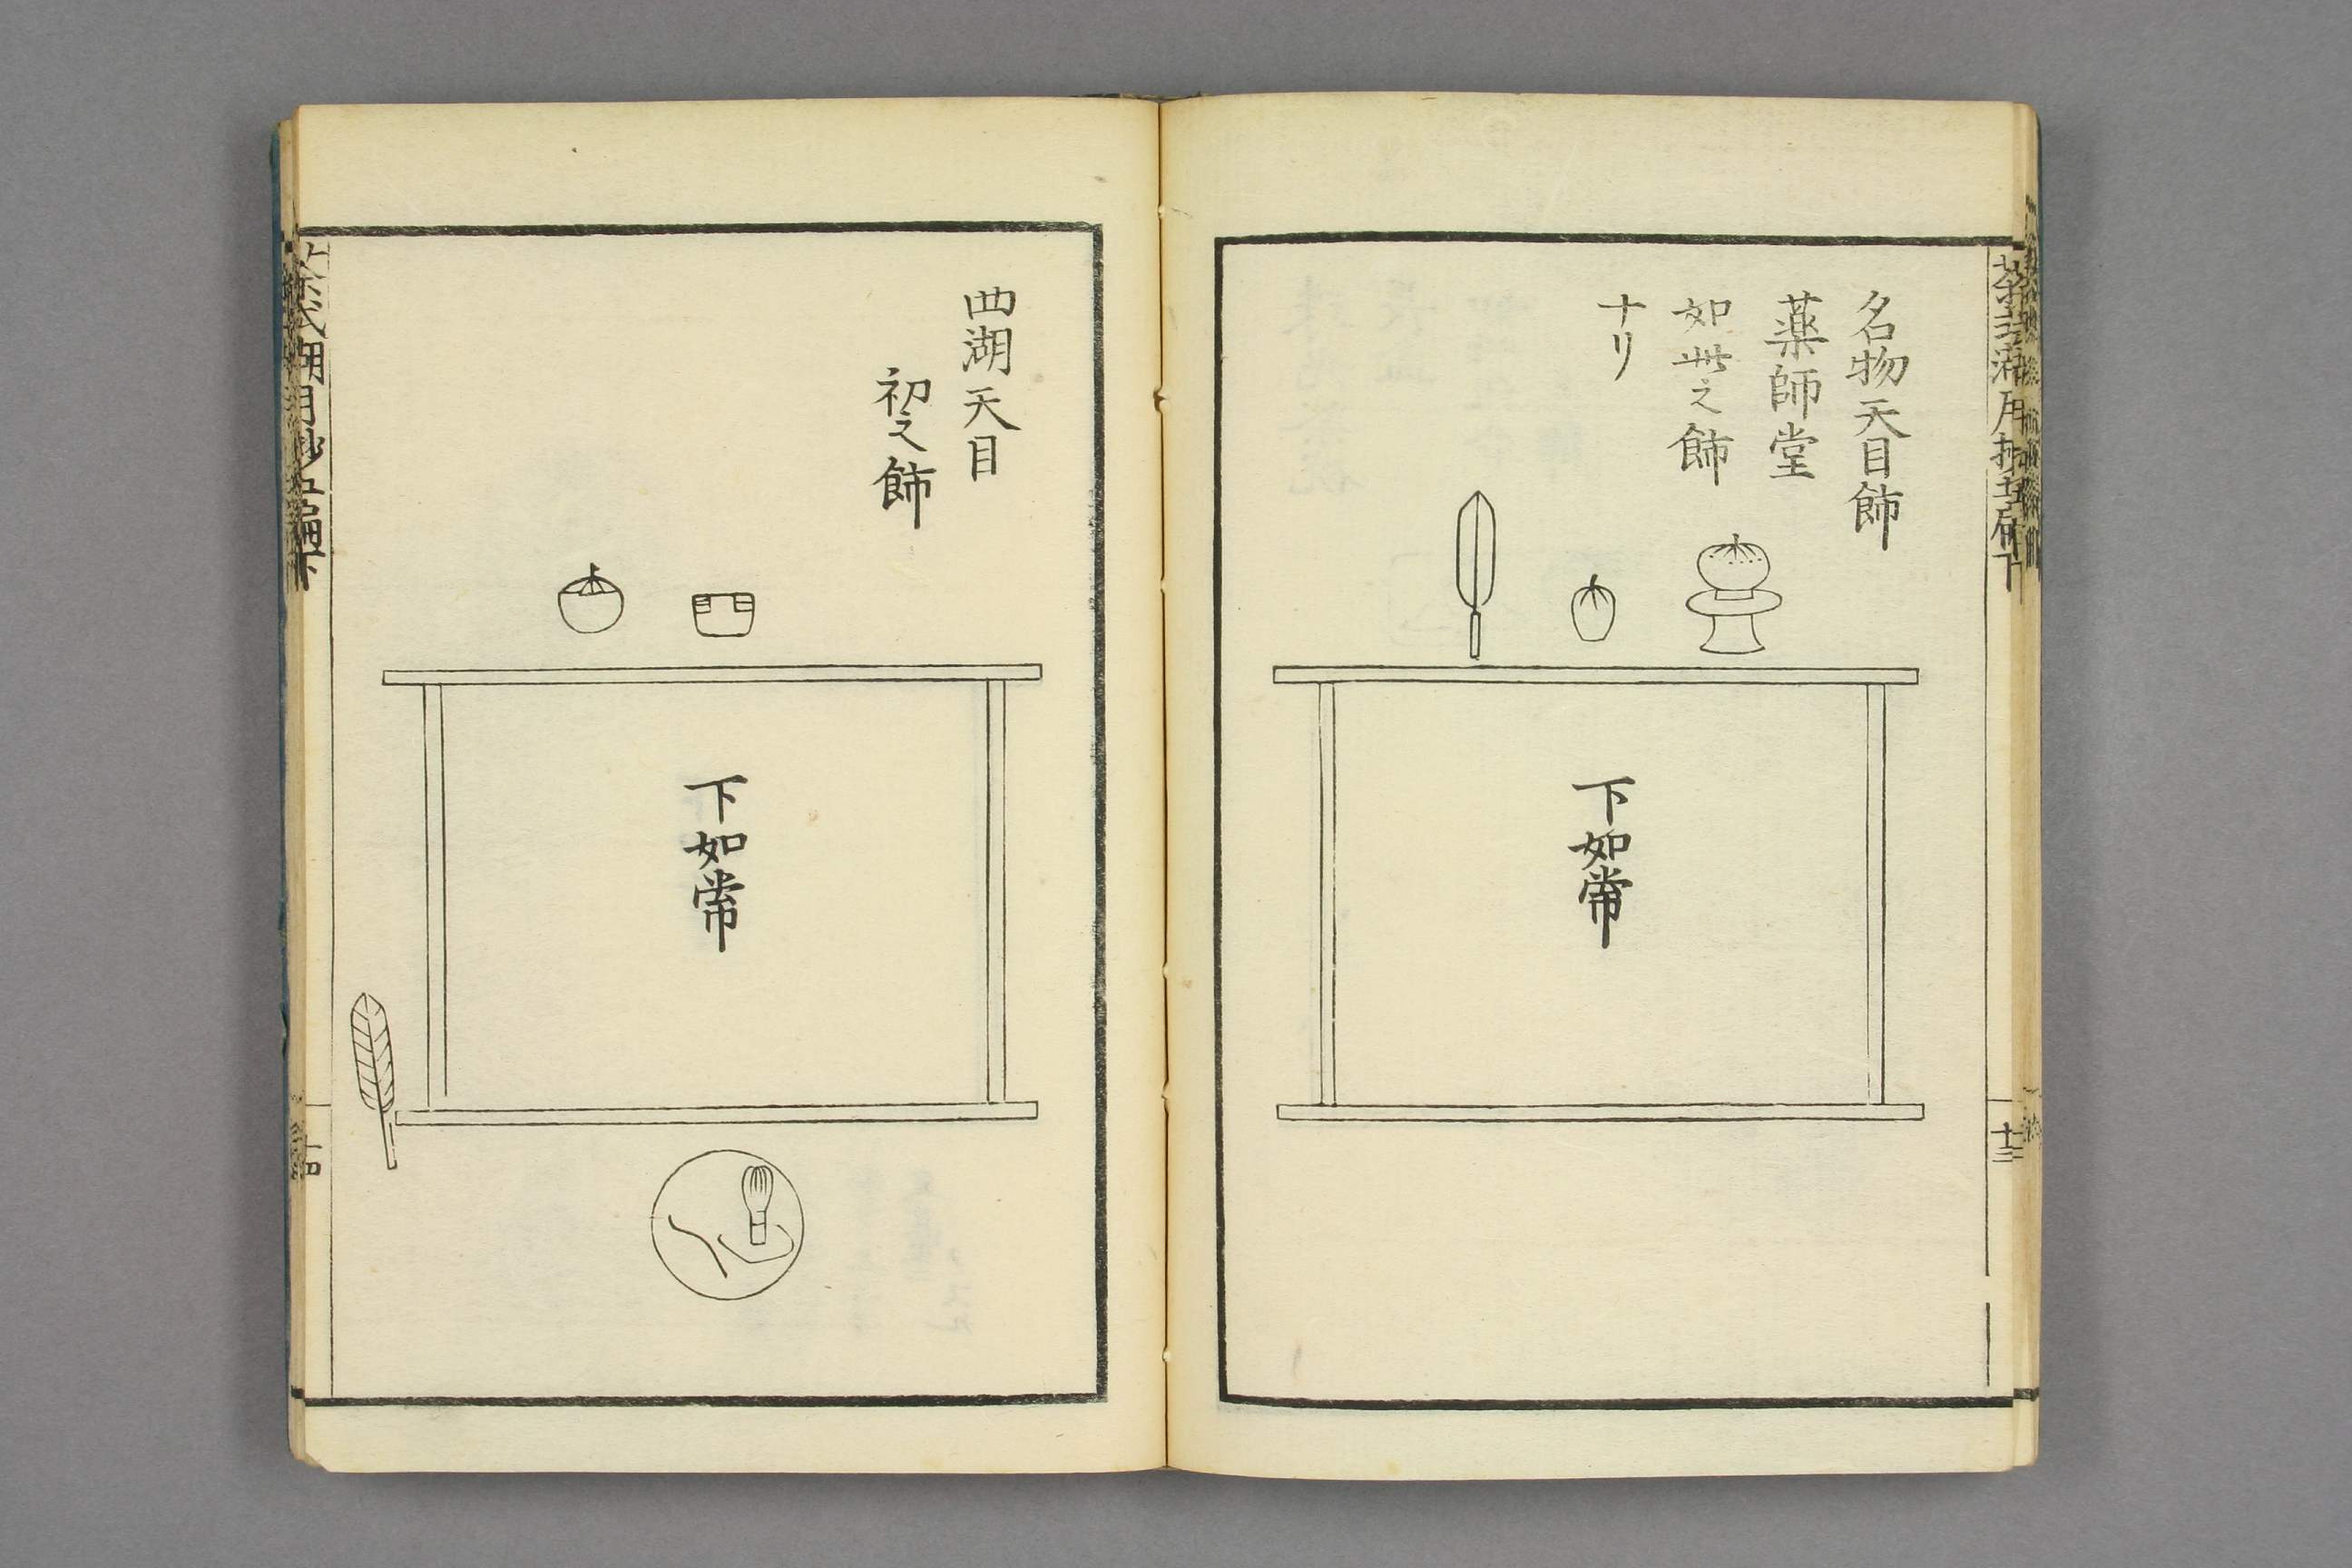 名物天目飾
薬師堂
如此之飾
ナリ
下如常
十三
西湖天目
初之飾
下如常
十四